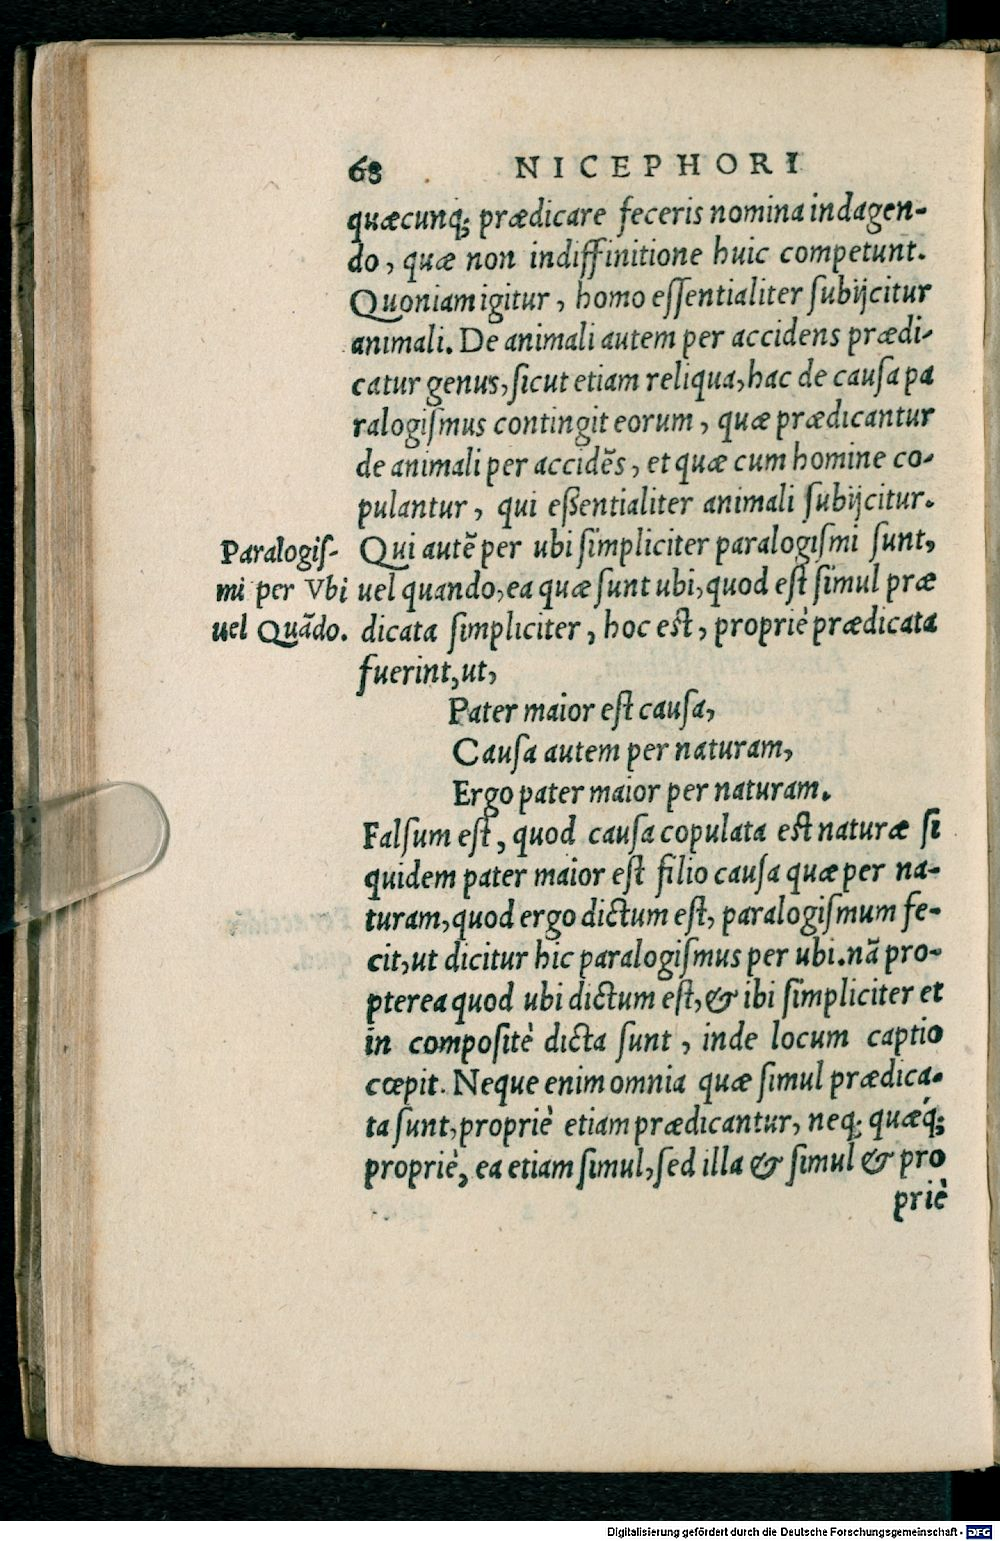 68 NICEPHORI
quæcunq; prædicare feceris nomina indagen-
do, quæ non indiffinitione huic competunt.
Quoniam igitur, homo eſſentialiter ſubijcitur
animali. De animali autem per accidens prædi-
catur genus, ſicut etiam reliqua, hac de cauſa pa
ralogiſmus contingit eorum, quæ prædicantur
de animali per accidẽs, et quæ cum homine co-
pulantur, qui eßentialiter animali ſubijcitur.
Qui autẽ per ubi ſimpliciter paralogiſmi ſunt,
uel quando, ea quæ ſunt ubi, quod eſt ſimul præ
dicata ſimpliciter, hoc eſt, propriè prædicata
fuerint, ut,
Paralogiſ-
mi per Vbi
uel Quãdo.
Pater maior eſt cauſa,
Cauſa autem per naturam,
Ergo pater maior per naturam.
Falſum eſt, quod cauſa copulata eſt naturæ ſi
quidem pater maior eſt filio cauſa quæ per na-
turam, quod ergo dictum eſt, paralogiſmum fe-
cit, ut dicitur hic paralogiſmus per ubi. nã pro-
pterea quod ubi dictum eſt, & ibi ſimpliciter et
in compoſitè dicta ſunt, inde locum captio
cœpit. Neque enim omnia quæ ſimul prædica-
ta ſunt, propriè etiam prædicantur, neq; quæq́;
propriè, ea etiam ſimul, ſed illa & ſimul & pro
priè
Digitalisierung gefördert durch die Deutsche Forschungsgemeinschaft - DFG